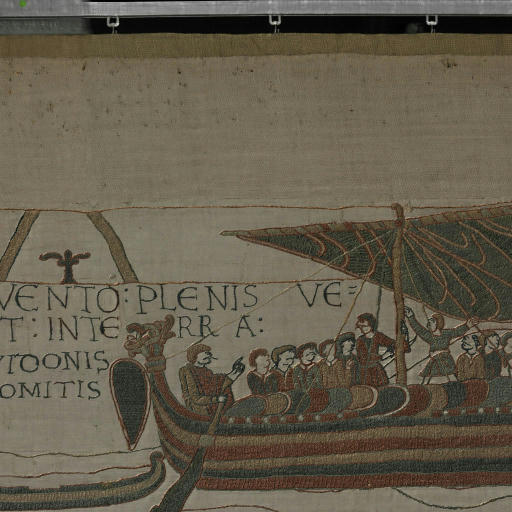 VENTO: PLENIS VE=
T: IN TE RR A:
VVIDONIS
OMITIS